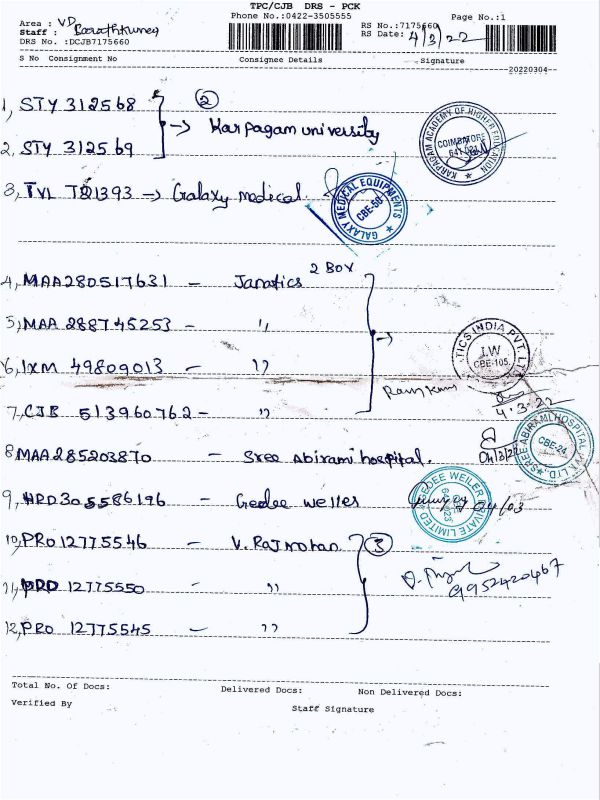 TPC/CJB DRS - PCK
Phone No.:0422-3505555
Page No.:1
Area : VD
Staff : Barathkumar
DRS No. :DCJB7175660
RS No.:7175660
RS Date: 4/3/22
S No Consignment No Consignee Details Signature
20220304
1, STY 312568 ②
→ Karpagam university
2, STY 312569
KARPAGAM ACADEMY OF HIGHER EDUCATION
COIMBATORE
641 021
3, TVL T81393 → Galaxy medical.
GALAXY MEDICAL EQUIPMENTS
CBE-50
4, MAA280517631 - Janatics 2 BOX
5, MAA 288745253 - "
6, IXM 49809013 - "
TICS INDIA PVT. LT
I.W
CBE-105.
7, CJB 513960762 - "
4.3.22
8 MAA285203870 - Sree abirami hospital.
04/3/22
SREE ABIRAMI HOSPITAL PVT. LTD.
CBE-24
9, HRD305586196 - Gedee weiler
04/03
GEDEE WEILER PRIVATE LIMITED
10, PRO12775546 - V. Rajmohan ③
9952420467
11, PRO 12775550 - "
12, PRO 12775545 - "
Total No. Of Docs: Delivered Docs: Non Delivered Docs:
Verified By Staff Signature